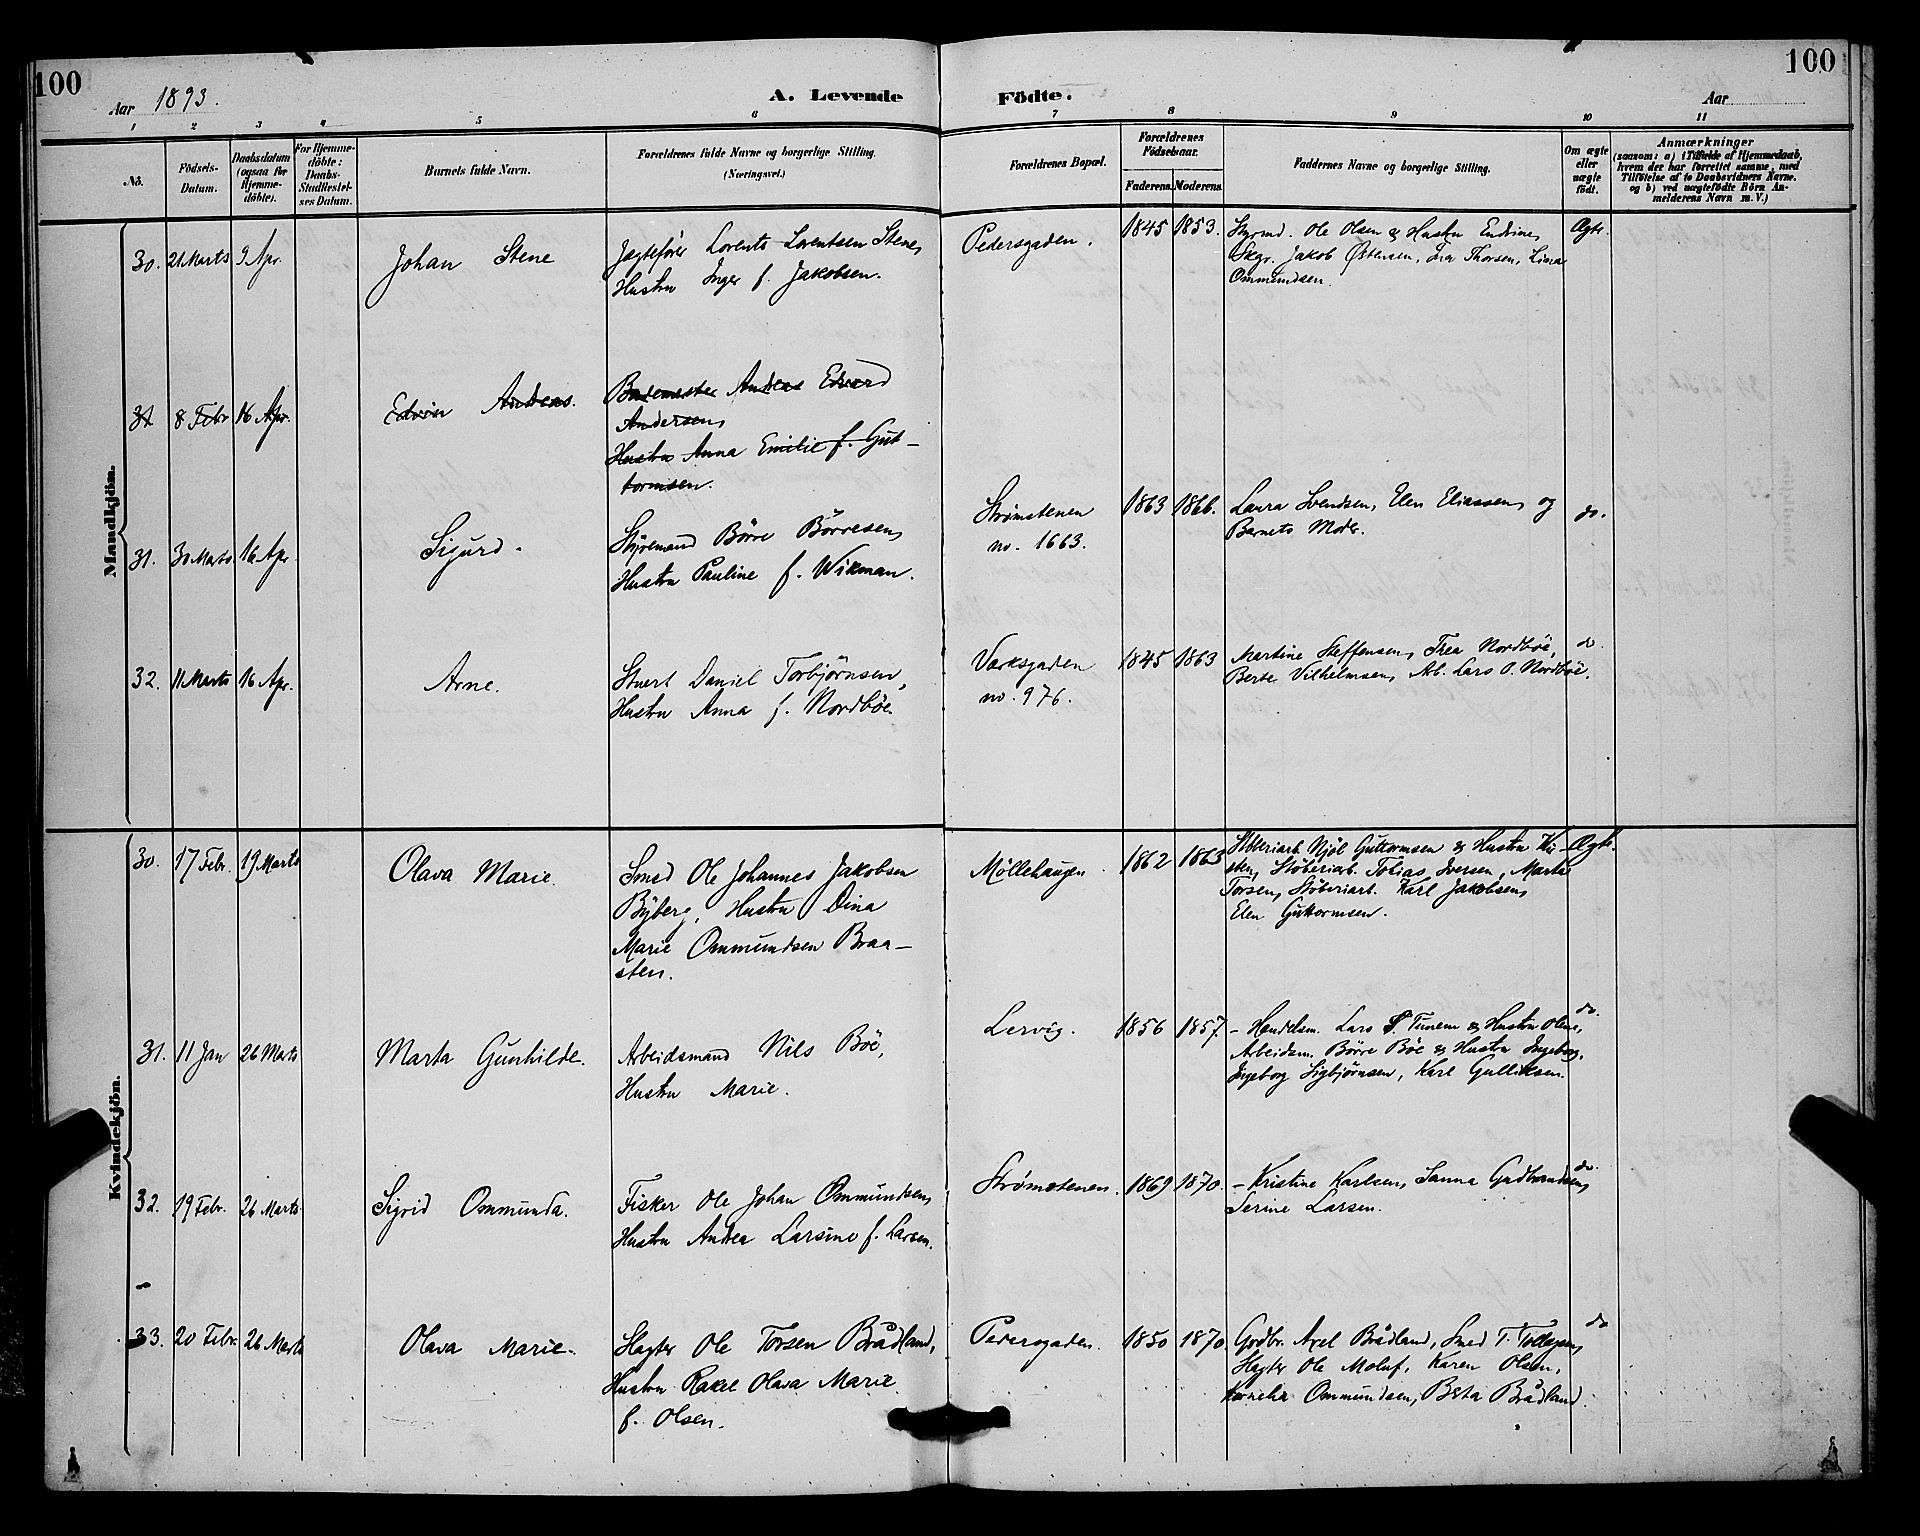 100
100
Aar 1893.
A. Levende
Födte.
Aar
1 2 3 4 5 6 7 8 9 10 11
No.
Födsels-
Datum.
Daabsdatum
(ogsaa for
Hjemme-
döbte).
For Hjemme-
döbte:
Daabs-
Stadfæstel-
ses Datum.
Barnets fulde Navn.
Forældrenes fulde Navne og borgerlige Stilling.
(Næringsvei.)
Forældrenes Bopæl.
Forældrenes
Födselsaar.
Faderens. Moderens.
Faddernes Navne og borgerlige Stilling.
Om ægte
eller
uægte
födt.
Anmærkninger
(saasom: a) i Tilfælde af Hjemmedaab,
hvem der har forrettet samme, med
Tilföielse af to Daabsvidners Navne,
og b) ved uægtefödte Börn An-
melderens Navn m. V.)
Mandkjön.
30. 21 Marts 9 Apr.
Johan Stene
Jagtefører Lorents Lorentsen Stene,
Hustru Inger f. Jakobsen.
Pedersgaden.
1845 1853.
Styrmd. Ole Olsen & Hustru Endrine,
Skgr. Jakob Østensen, Thorsen, Lina
Ommundsen.
Ægte.
31 8 Febr 16 Apr.
Edvin Andreas.
Bademester Andreas Edvard
Andersen,
Hustru Anna Emilie f. Gut-
tormsen.
31. 30 Marts. 16 Apr.
Sigurd.
Styrmand Börre Börresen,
Hustru Pauline f. Wikman.
Strømstenen
no. 1663.
1863 1866.
Laura Svendsen, Elen Eliassen, og
Barnets Moder.
do.
32. 11 Marts 16 Apr.
Arne.
Stuert Daniel Torbjörnsen,
Hustru Anna f. Nordböe.
Værksgaden
no. 976.
1845 1863
Martine Steffensen, Trea Nordböe,
Berte Vilhelmsen, Arb. Lars O. Nordböe.
do
Kvindekjön.
30. 17 Febr. 19 Marts
Olava Marie.
Smed Ole Johannes Jakobsen
Byberg, Hustru Dina
Marie Ommundsen Braa-
sten.
Möllehaugen
1862 1863
Stöberiarb. Njöl Guttormsen & Hustru Ki-
sten, Stöberiarb. Tobias Iversen, Marta
Torsen, Stöberiarb. Karl Jakobsen,
Elen Guttormsen.
Ægte.
31. 11 Jan 26 Marts
Marta Gunhilde.
Arbeidsmand Nils Böe,
Hustru Marie.
Lervig.
1856 1857.
- Handelsm. Lars T. Tunem & Hustru Olene,
Arbeidsm. Börre Böe & Hustru Ingeborg,
Ingeborg Sigbjørnsen, Karl Gulliksen.
do.
32. 19 Febr. 26 Marts.
Sigrid Ommunda.
Fisker Ole Johan Ommundsen,
Hustru Andrea Larsine f. Larsen.
Strømstenen.
1869 1870.
- Kristine Karlsen, Sanna Gudbrandsen,
Serine Larsen.
do.
33. 20 Febr. 26 Marts
Olava Marie.
Slagter Ole Torsen Brådland,
Hustru Rakel Olava Marie
f. Olsen.
Pedersgaden.
1850 1870.
Grdbr. Axel Brådland, Smed T. Tollagsen,
Slagter Ole Moluf, Karen Olsen,
Kornelia Ommundsen, Berta Brådland.
do